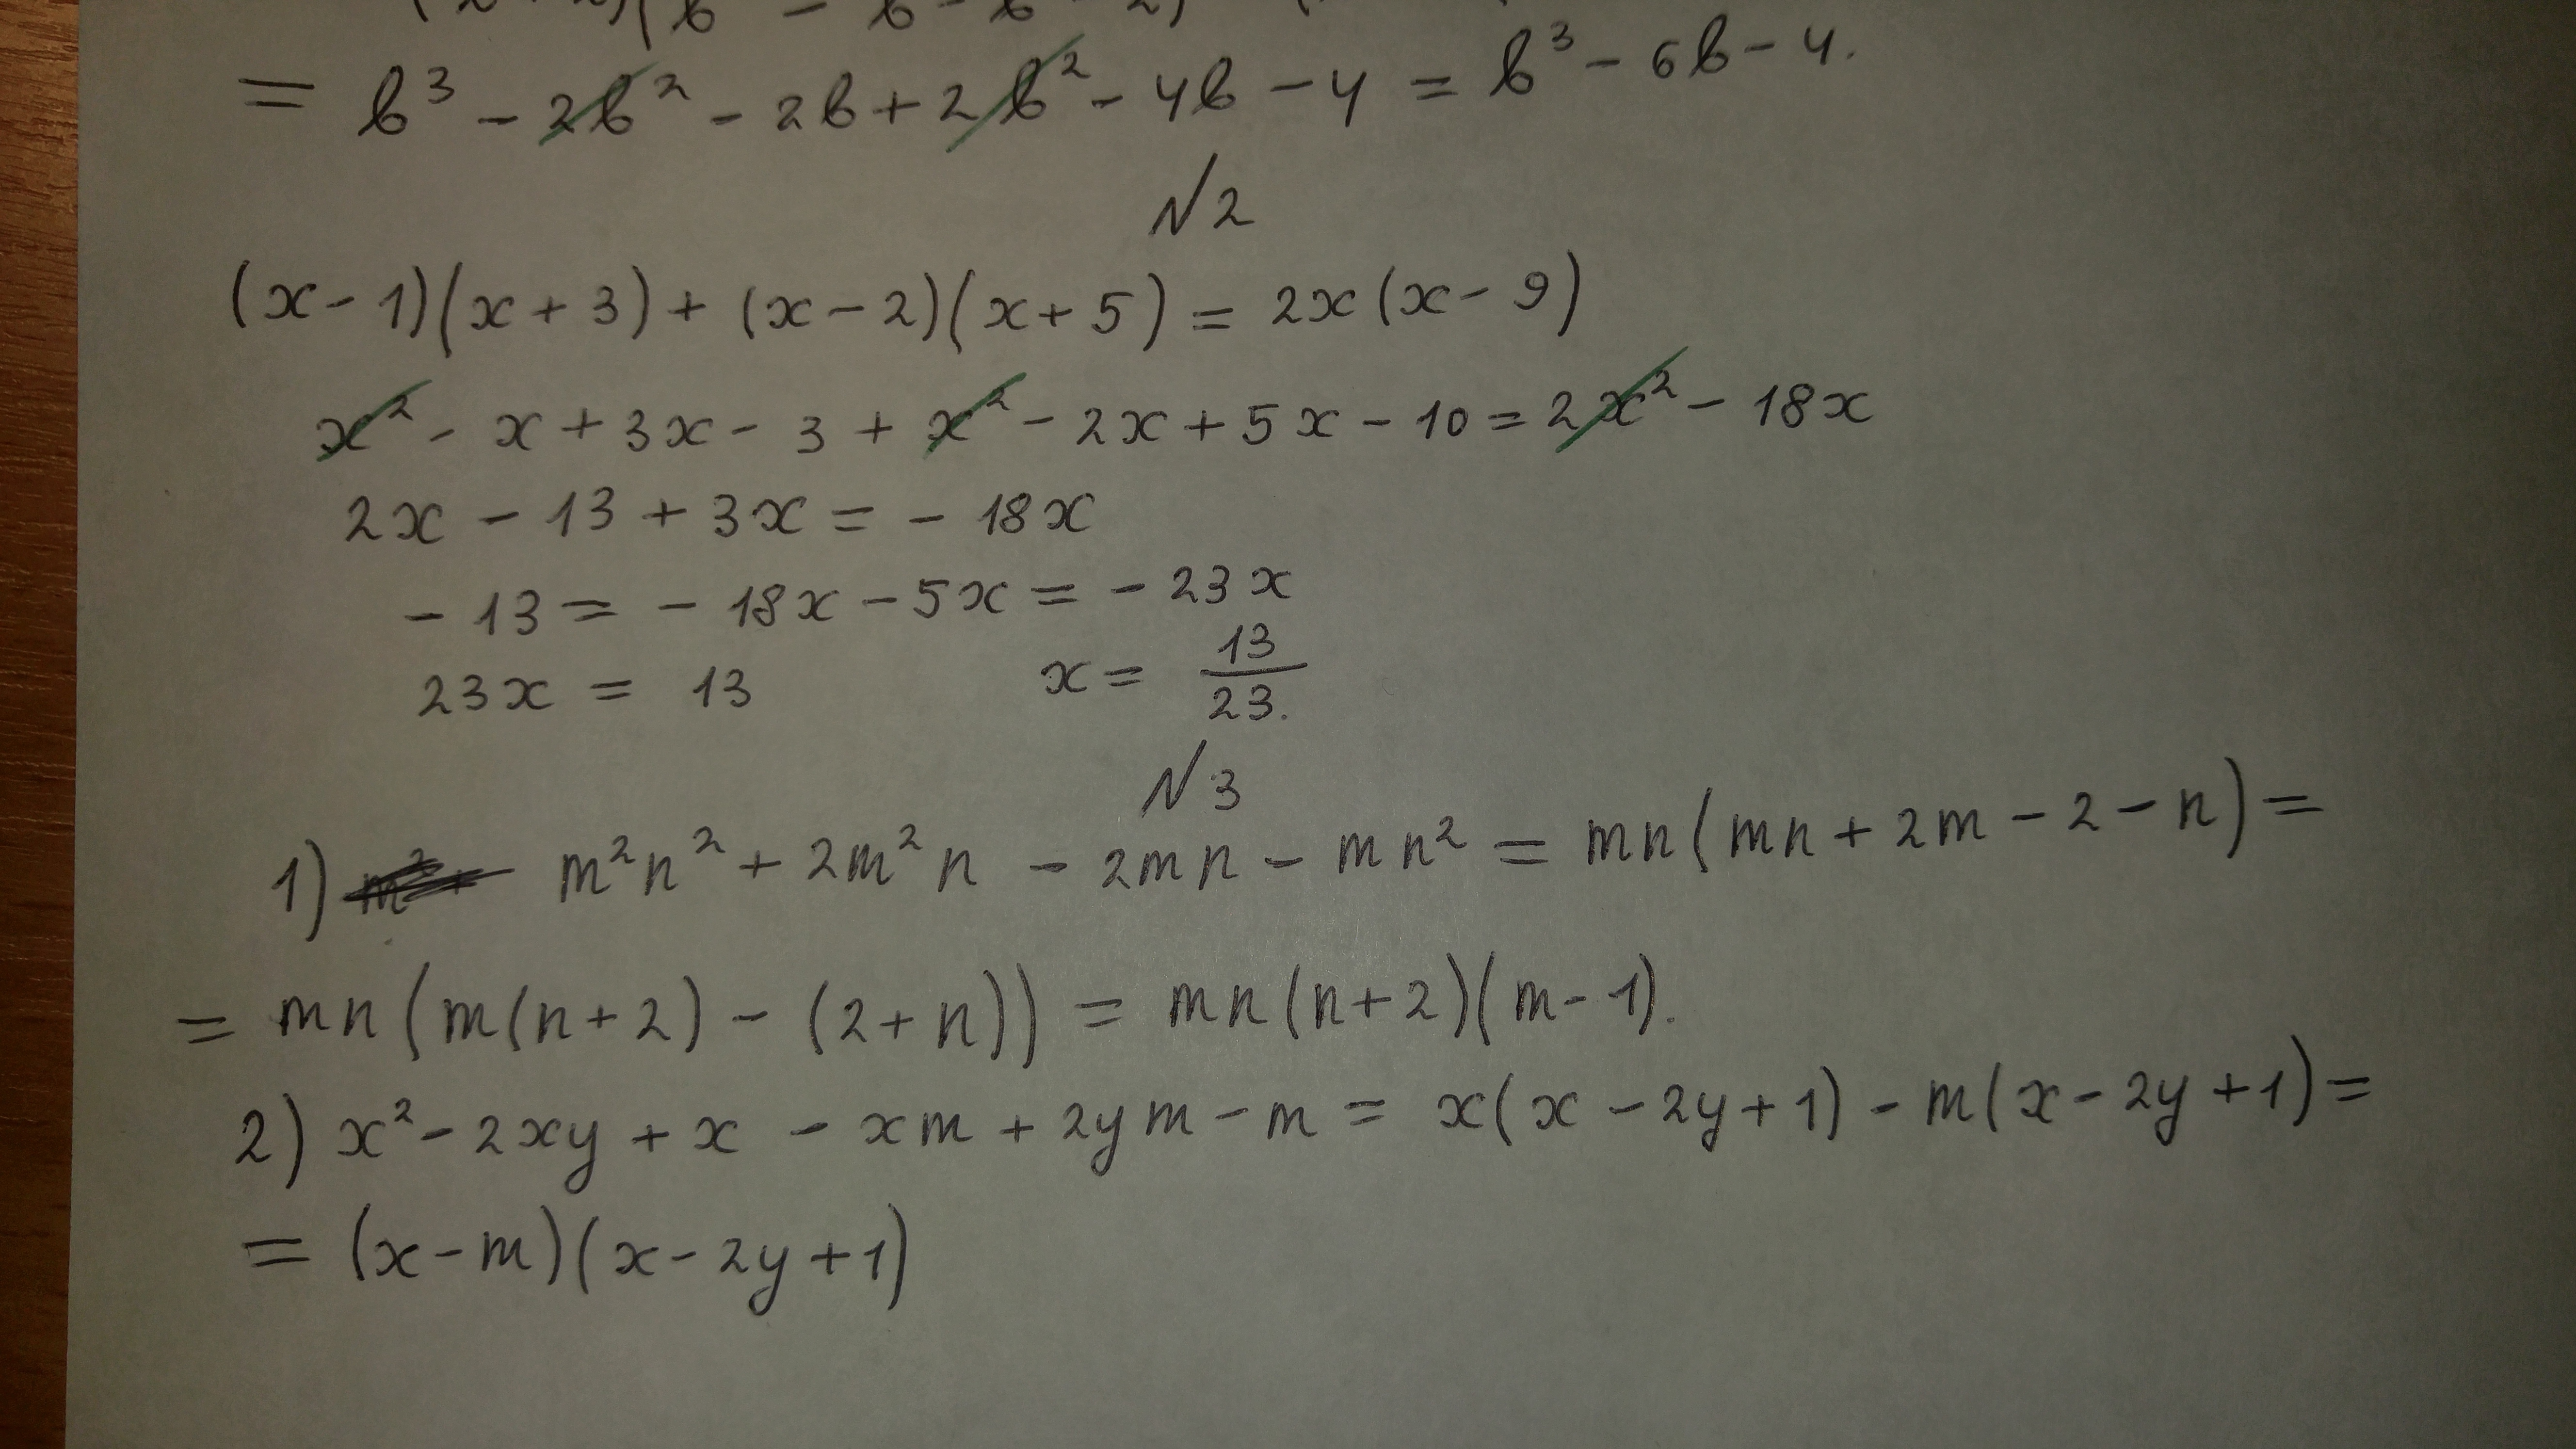 = b³ - 2b² - 2b + 2b² - 4b - 4 = b³ - 6b - 4.
№2
(x - 1)(x + 3) + (x - 2)(x + 5) = 2x(x - 9)
x² - x + 3x - 3 + x² - 2x + 5x - 10 = 2x² - 18x
2x - 13 + 3x = - 18x
- 13 = - 18x - 5x = - 23x
23x = 13 x = 13/23.
№3
1) m²n² + 2m²n - 2mn - mn² = mn(mn + 2m - 2 - n) =
= mn(m(n + 2) - (2 + n)) = mn(n + 2)(m - 1).
2) x² - 2xy + x - xm + 2ym - m = x(x - 2y + 1) - m(x - 2y + 1) =
= (x - m)(x - 2y + 1)